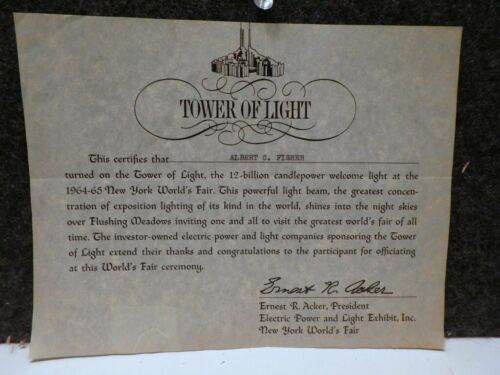 TOWER OF LIGHT
This certifies that ALBERT C. FISHER
turned on the Tower of Light, the 12-billion candlepower welcome light at the
1964-65 New York World's Fair. This powerful light beam, the greatest concen-
tration of exposition lighting of its kind in the world, shines into the night skies
over Flushing Meadows inviting one and all to visit the greatest world's fair of all
time. The investor-owned electric power and light companies sponsoring the Tower
of Light extend their thanks and congratulations to the participant for officiating
at this World's Fair ceremony.
Ernest R. Acker
Ernest R. Acker, President
Electric Power and Light Exhibit, Inc.
New York World's Fair